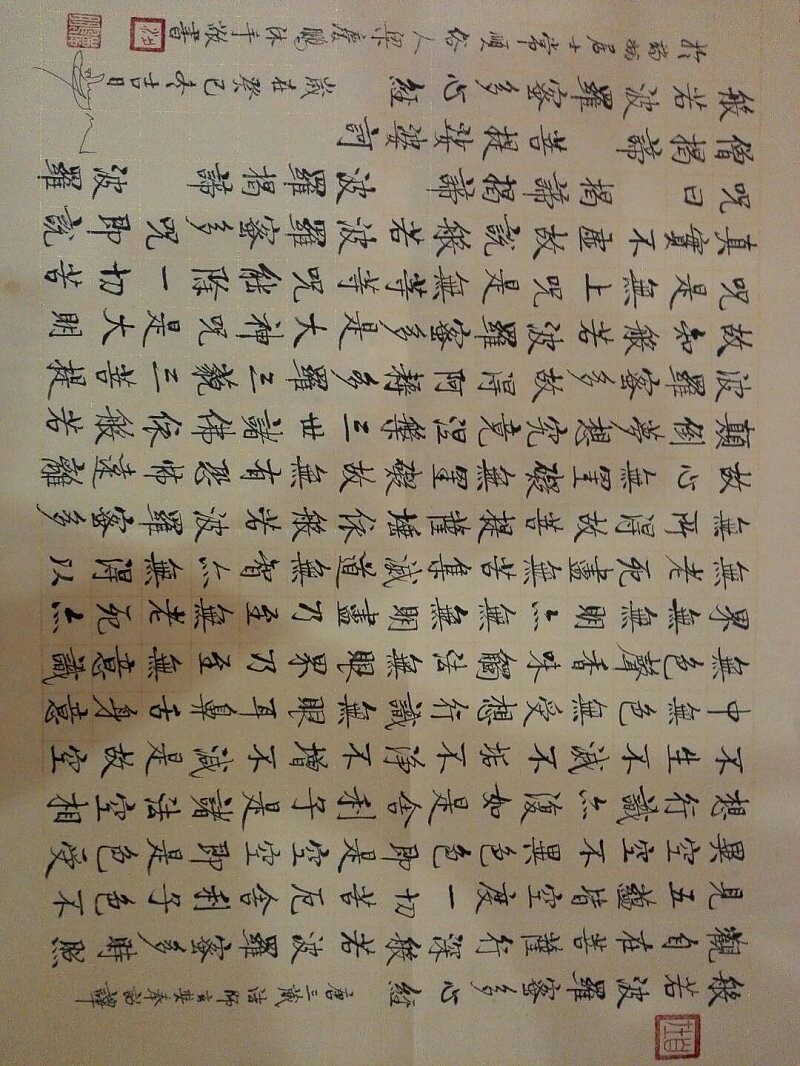 般若波羅蜜多心經 唐三藏法師玄奘奉詔譯
觀自在菩薩行深般若波羅蜜多時照
見五蘊皆空度一切苦厄舍利子色不
異空空不異色色即是空空即是色受
想行識亦復如是舍利子是諸法空相
不生不滅不垢不淨不增不減是故空
中無色無受想行識無眼耳鼻舌身意
無色聲香味觸法無眼界乃至無意識
界無無明亦無無明盡乃至無老死亦
無老死盡無苦集滅道無智亦無得以
無所得故菩提薩埵依般若波羅蜜多
故心無罣礙無罣礙故無有恐怖遠離
顛倒夢想究竟涅槃三世諸佛依般若
波羅蜜多故得阿耨多羅三藐三菩提
故知般若波羅蜜多是大神咒是大明
咒是無上咒是無等等咒能除一切苦
真實不虛故說般若波羅蜜多咒即說
咒曰 揭諦揭諦 波羅揭諦 波羅
僧揭諦 菩提娑婆訶
般若波羅蜜多心經 歲在癸巳冬吉日
居士常順俗人梁慶鵬沐手敬書